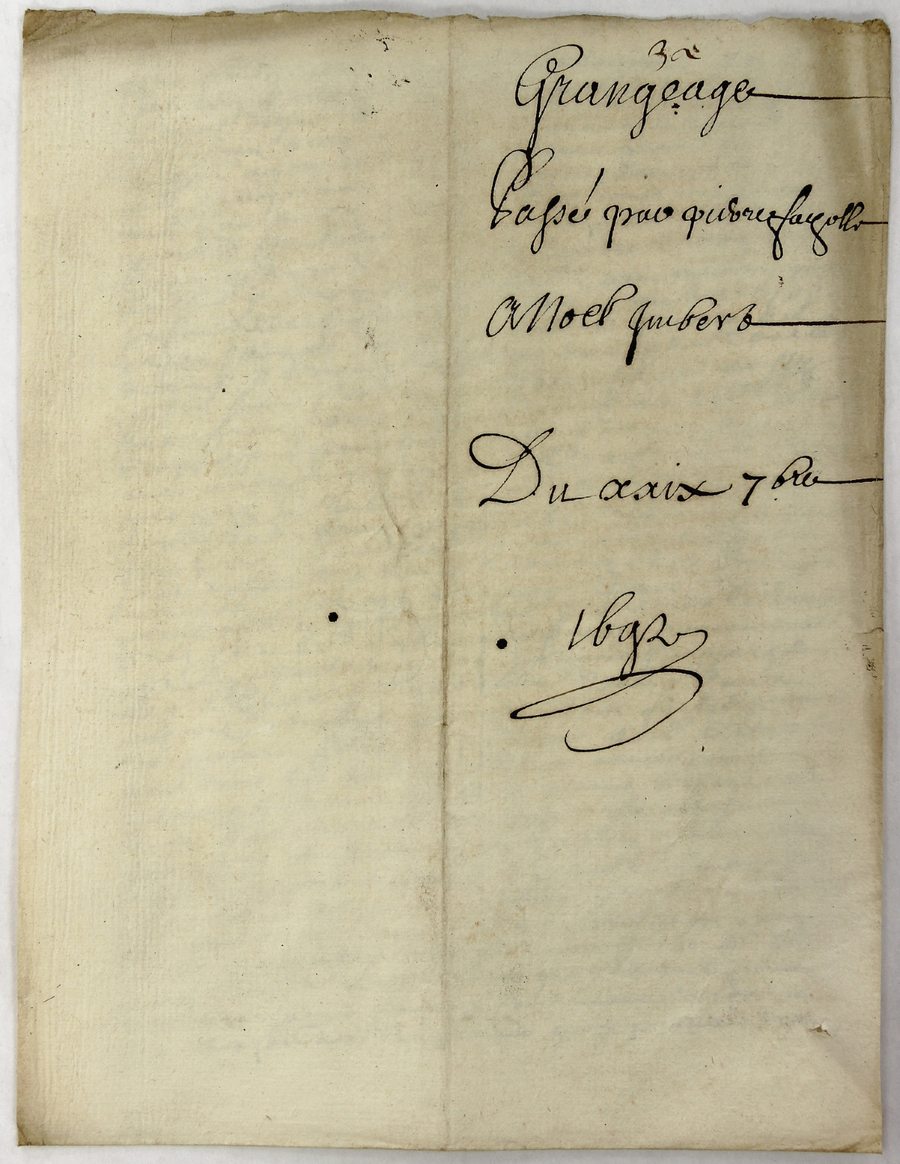 3e
Grangeage
Passé par pierre fayolle
A Noel Imbert
Du xxix 7bre
1692